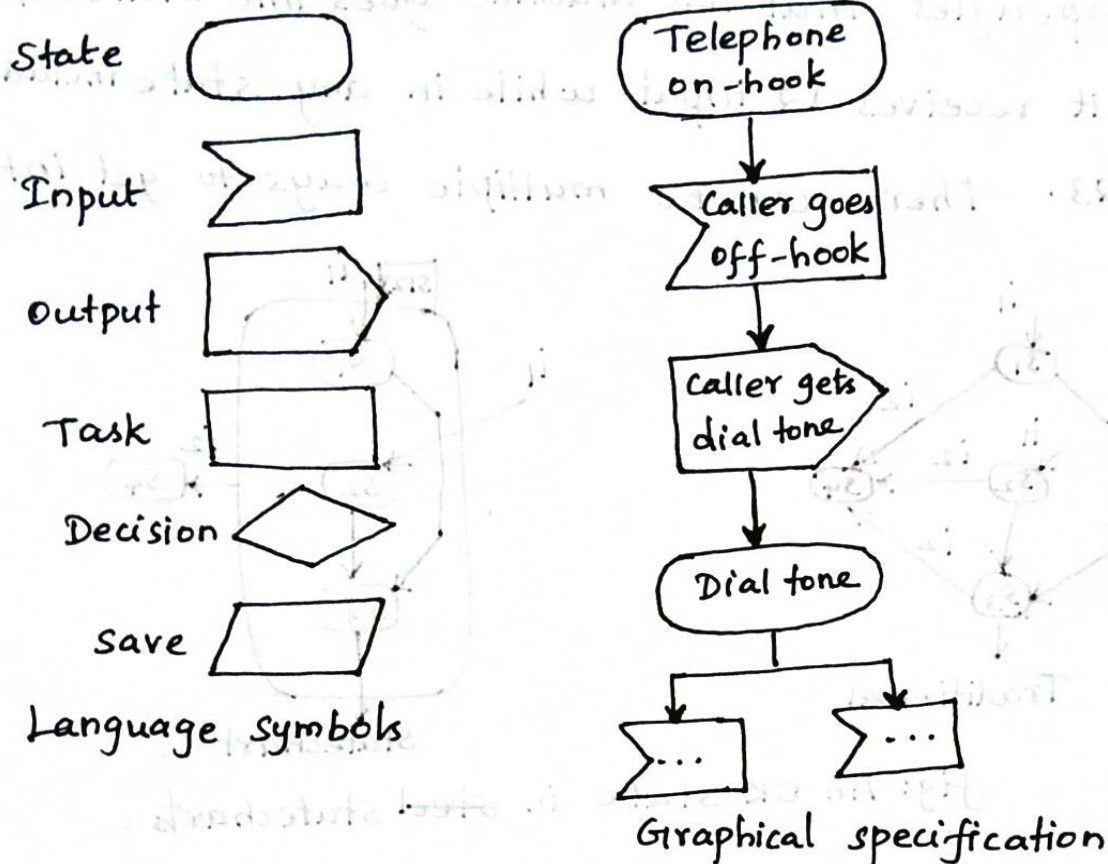 State
Input
output
Task
Decision
save
Language symbols
Telephone
on-hook
Caller goes
off-hook
Caller gets
dial tone
Dial tone
...
...
Graphical specification